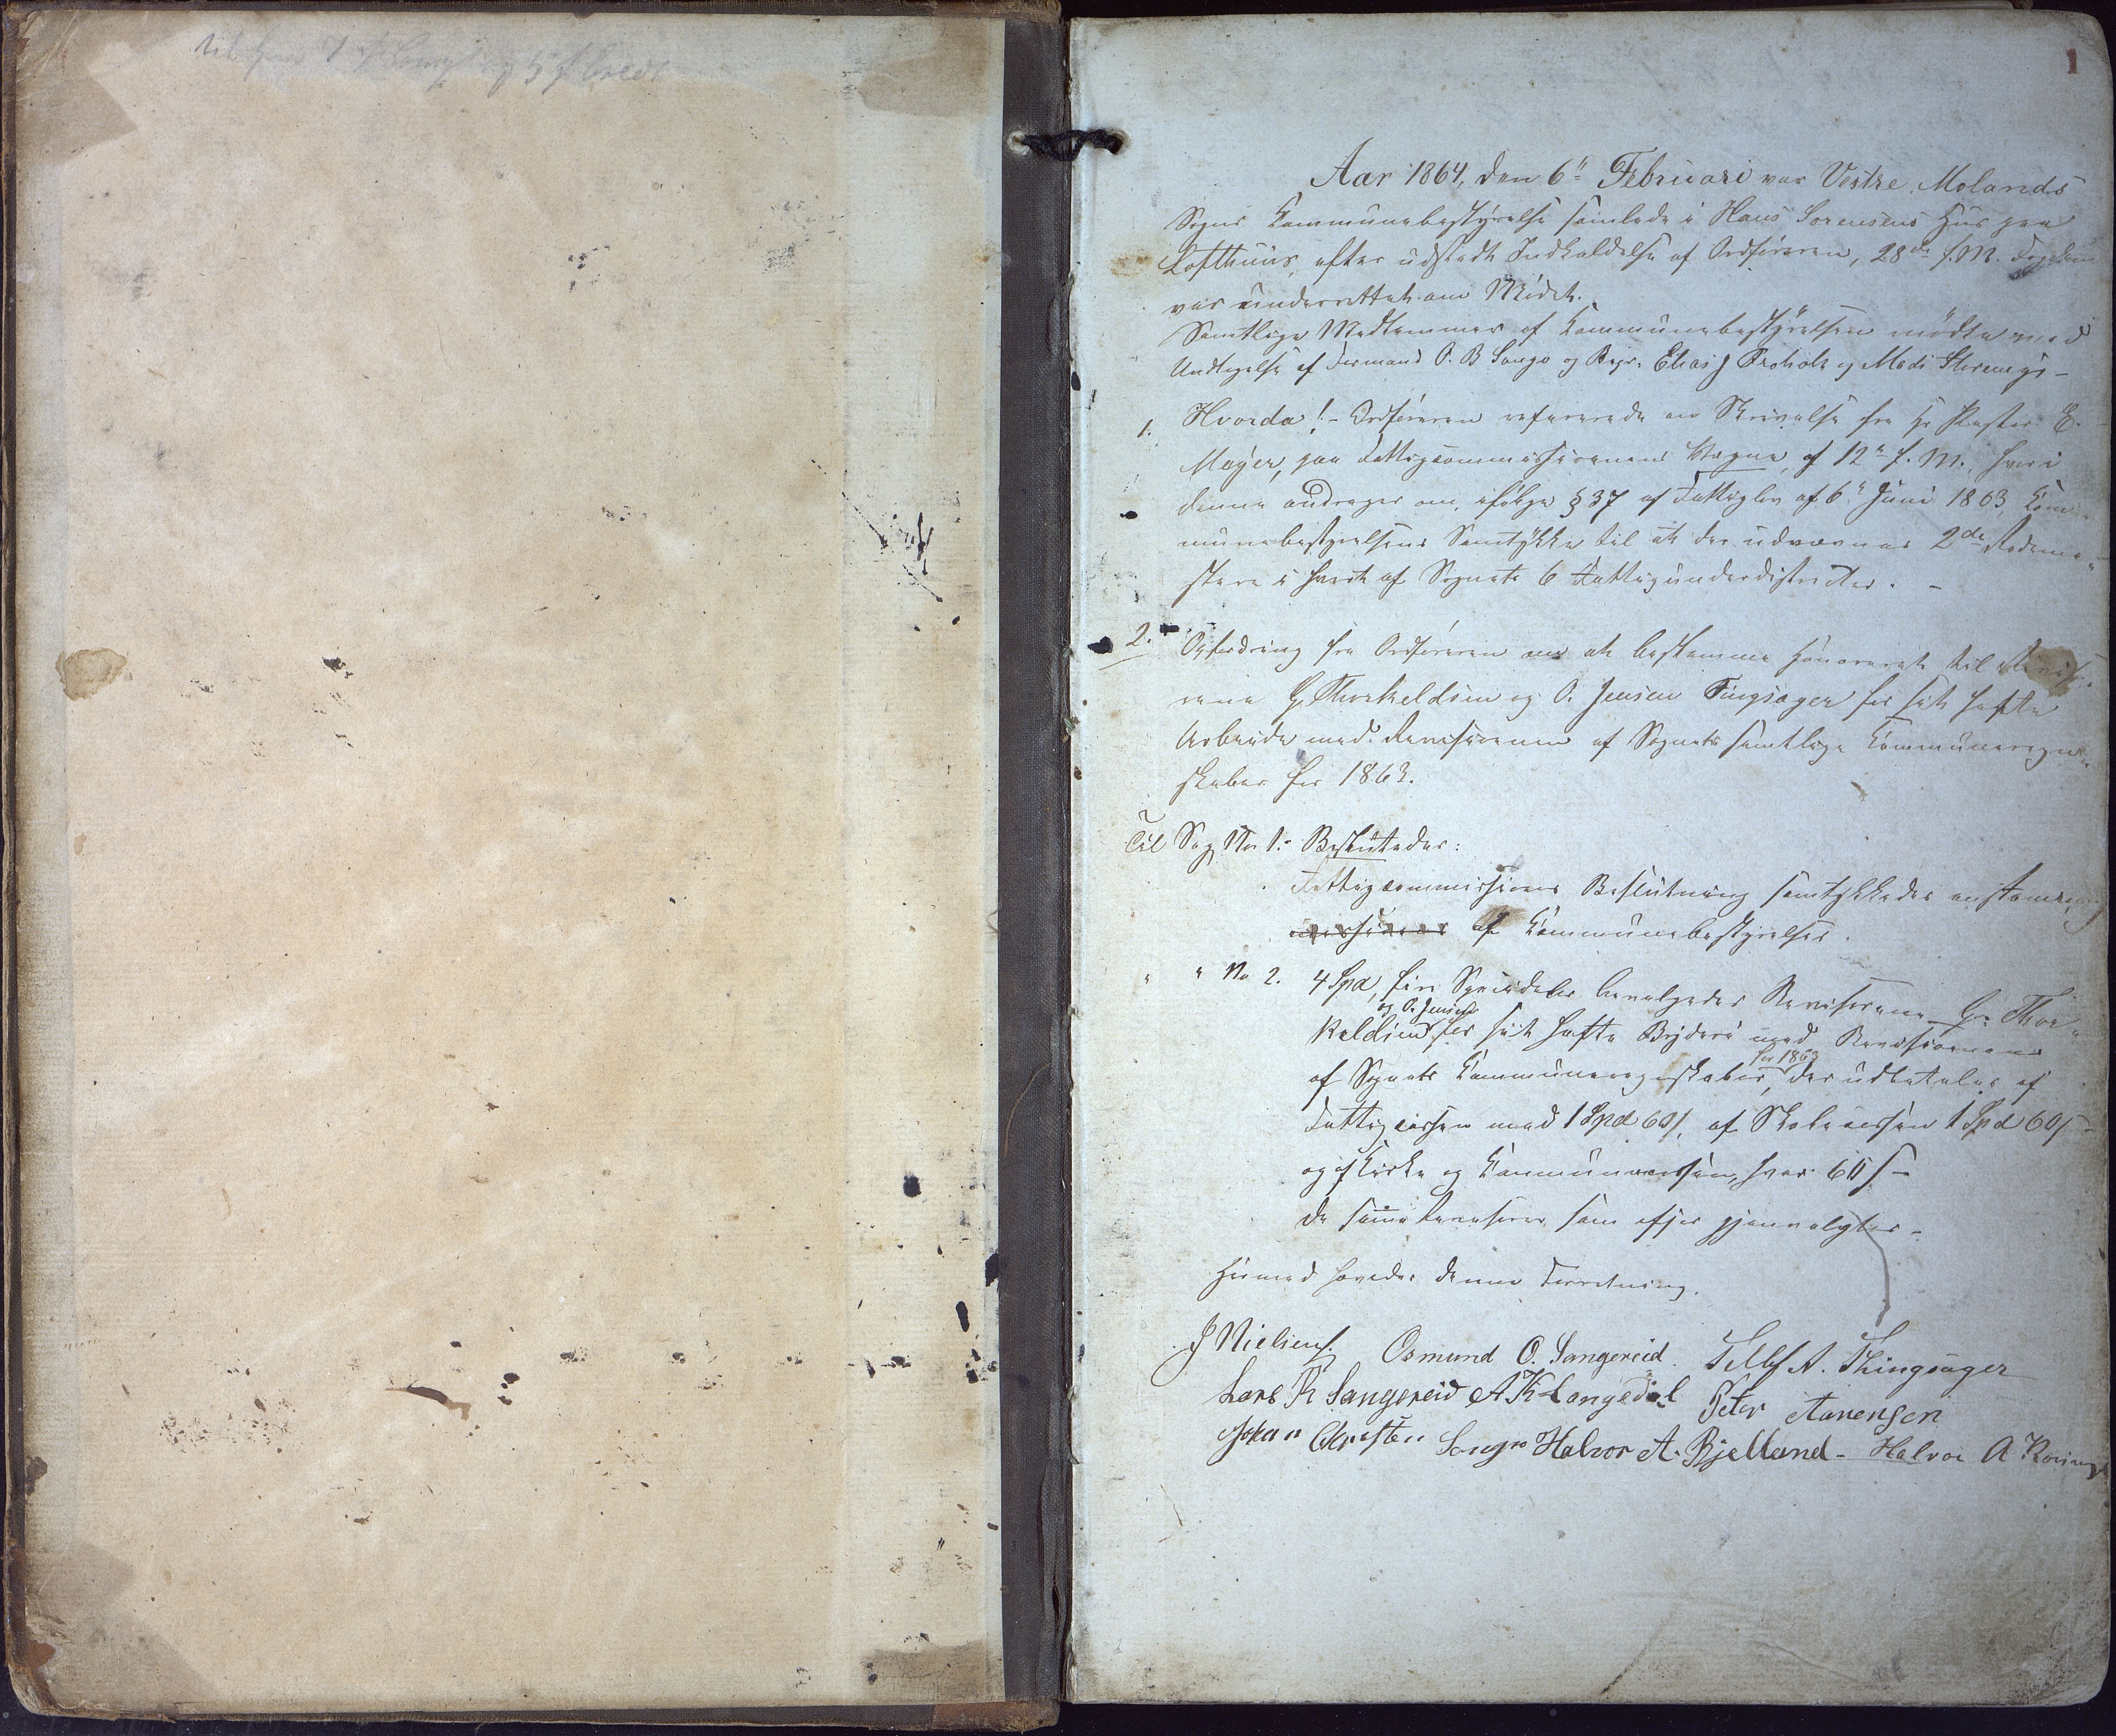 1
Aar 1864, den 6" Februari var Vestre Molands
Sogns Kommunebestyrelse samlede i Hans Sørensens Huus paa
Lofthuus, efter udstedt Indkaldelse af Ordføreren, 28de f. M. Fogden
var underrettet om Mødet.
Samtlige Medlemmer af Kommunebestyrelsen mødte med
Undtagelse af Formand O. B Songe og Repr. Elias J og Mads
1. Hvorda! - Ordføreren refererede en Skrivelse fra Hr Pastor E.
Mayer, paa Fattigcommissionens Vegne, af 12" f. M., hvori
denne andrager om, ifølge § 37 af Fattiglov af 6" Juni 1863, Kom-
munebestyrelsens Samtykke til at der udnævnes 2de Rodeme-
stere i hvert af Sognets 6 Fattigunderdistricter. -
2. Opfordring fra Ordføreren om at bestemme Honoraret til Reviso-
rene G. Thorkeldsen og O. Jensen Tingsager for sit hafte
Arbeide med Revisionen af Sognets samtlige Kommuneregn-
skaber for 1863.
Til Sag No 1. Besluttedes:
Fattigcommissions Beslutning samtykkedes enstemmig
af Kommunebestyrelsen.
" " No 2. 4 Spd, fire Speciedaler bevilgedes Revisorerne G. Thor-
keldsen og O. Jensen for sit hafte Bryderi med Revisionen
af Sognets Kommuneregnskaber for 1863, der udbetales af
Fattigcassen med 1 Spd 60 s, af Skolecassen 1 Spd 60 s -
og af Kirke og Kommunecassen, hver 60 s -
De samme Revisorer som ifjor gjenvalgtes -
Hermed hævedes denne Forretning.
J Nielsen. Osmund O. Sangereid. Tellef A. Thingsager
Lars R Sangereid A K Langedal Peter Aanensen
Johan Christen Songe Halvor A. Bjelland - Halvor A